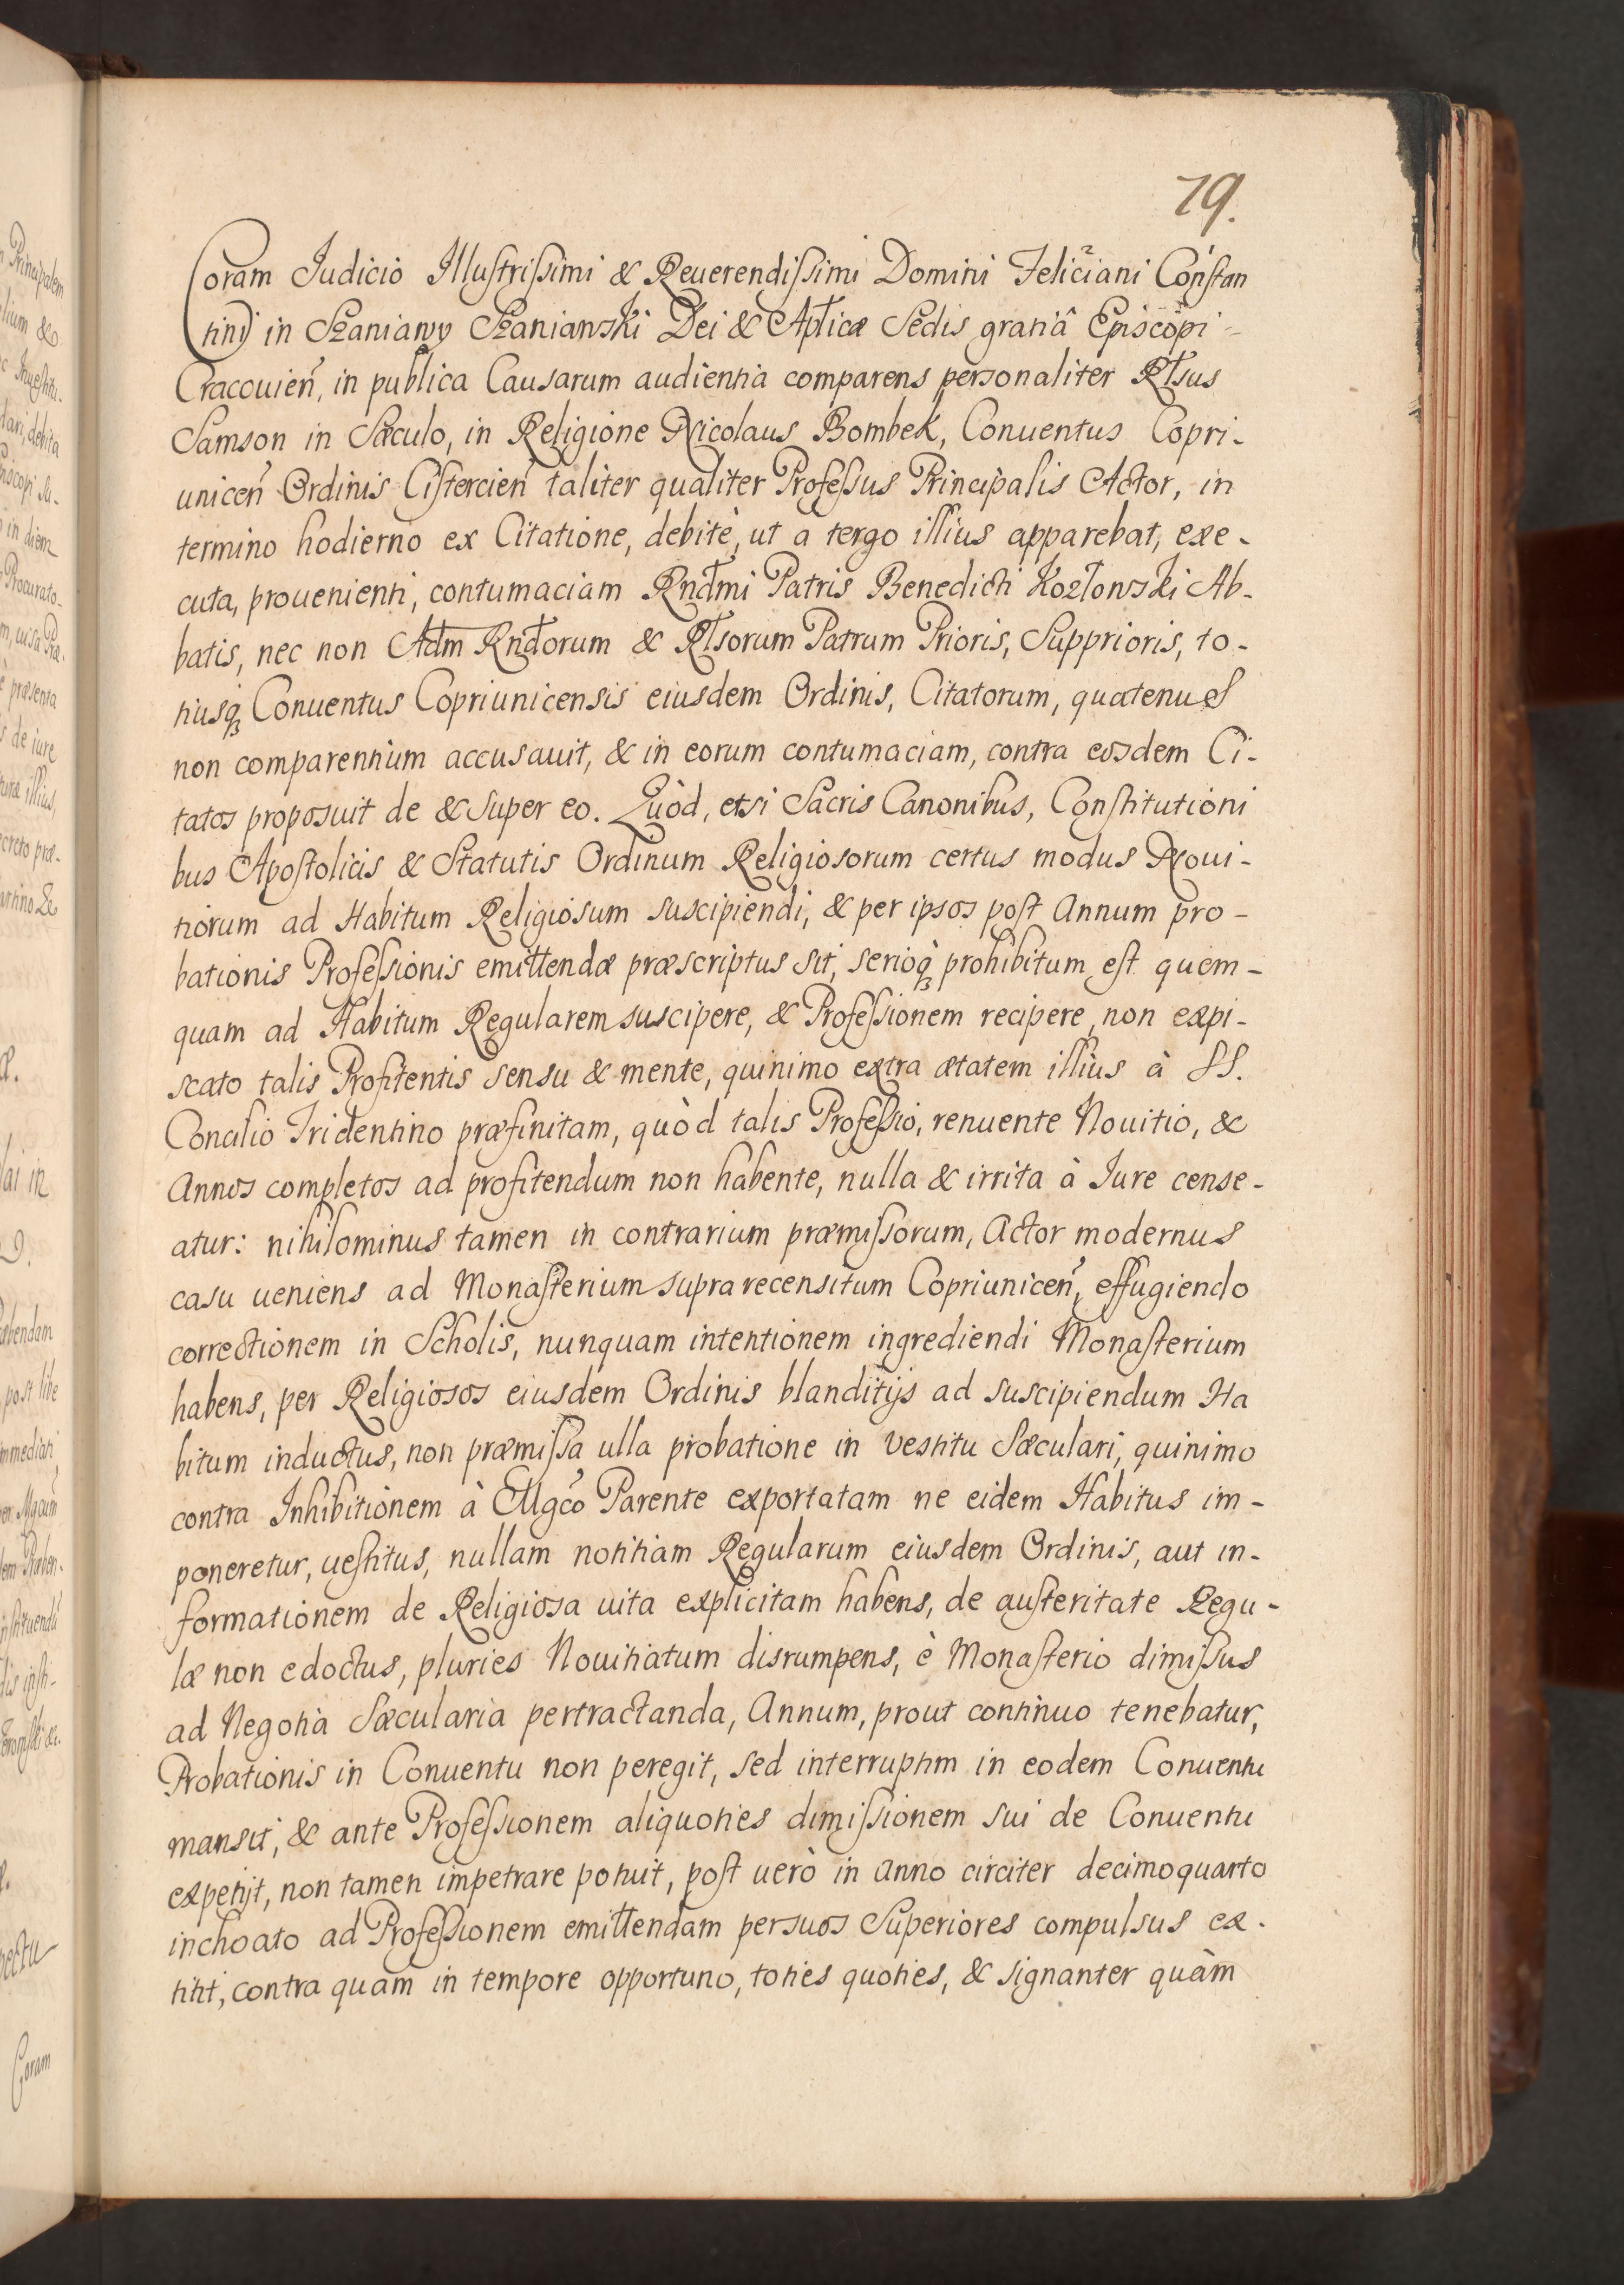 79.
Coram Judicio Illustrissimi & Reuerendissimi Domini Feliciani Constan
tini in Szaniawy Szaniawski Dei & Aplicæ Sedis gratiâ Episcopi
Cracouien, in publica Causarum audientia comparens personaliter Rlsus
Samson in Sæculo, in Religione Nicolaus Bombek, Conuentus Copri-
unicen Ordinis Cistercien taliter qualiter Professus Principalis Actor, in
termino hodierno ex Citatione, debitè, ut a tergo illius apparebat, exe-
cuta, prouenienti, contumaciam Rndmi Patris Benedicti Kozłowski Ab-
batis, nec non Adm Rndorum & Rlsorum Patrum Prioris, Supprioris, to-
tiusq Conuentus Copriunicensis eiusdem Ordinis, Citatorum, quatenus
non comparentium accusauit, & in eorum contumaciam, contra eosdem Ci-
tatos proposuit de & super eo. Quòd, etsi Sacris Canonibus, Constitutioni
bus Apostolicis & Statutis Ordinum Religiosorum certus modus Noui-
tiorum ad Habitum Religiosum suscipiendi, & per ipsos post Annum pro-
bationis Professionis emittendæ præscriptus sit, serioq prohibitum est quem-
quam ad Habitum Regularem suscipere, & Professionem recipere, non expi-
scato talis Profitentis sensu & mente, quinimo extra ætatem illius à SS.
Concilio Tridentino præfinitam, quòd talis Professio, renuente Nouitio, &
Annos completos ad profitendum non habente, nulla & irrita à Iure cense-
atur: nihilominus tamen in contrarium præmissorum, Actor modernus
casu ueniens ad Monasterium supra recensitum Copriunicen, effugiendo
correctionem in Scholis, nunquam intentionem ingrediendi Monasterium
habens, per Religiosos eiusdem Ordinis blanditijs ad suscipiendum Ha
bitum inductus, non præmissa ulla probatione in vestitu Sæculari, quinimo
contra Inhibitionem à Mgco Parente exportatam ne eidem Habitus im-
poneretur, uestitus, nullam notitiam Regularum eiusdem Ordinis, aut in-
formationem de Religiosa uita explicitam habens, de austeritate Regu-
læ non edoctus, pluries Nouitiatum disrumpens, è Monasterio dimissus
ad Negotia Sæcularia pertractanda, Annum, prout continuo tenebatur,
Probationis in Conuentu non peregit, sed interruptim in eodem Conuentu
mansit, & ante Professionem aliquoties dimissionem sui de Conuentu
expetijt, non tamen impetrare potuit, post uerò in anno circiter decimoquarto
inchoato ad Professionem emittendam per suos Superiores compulsus ex-
titit, contra quam in tempore opportuno, toties quoties, & signanter quàm